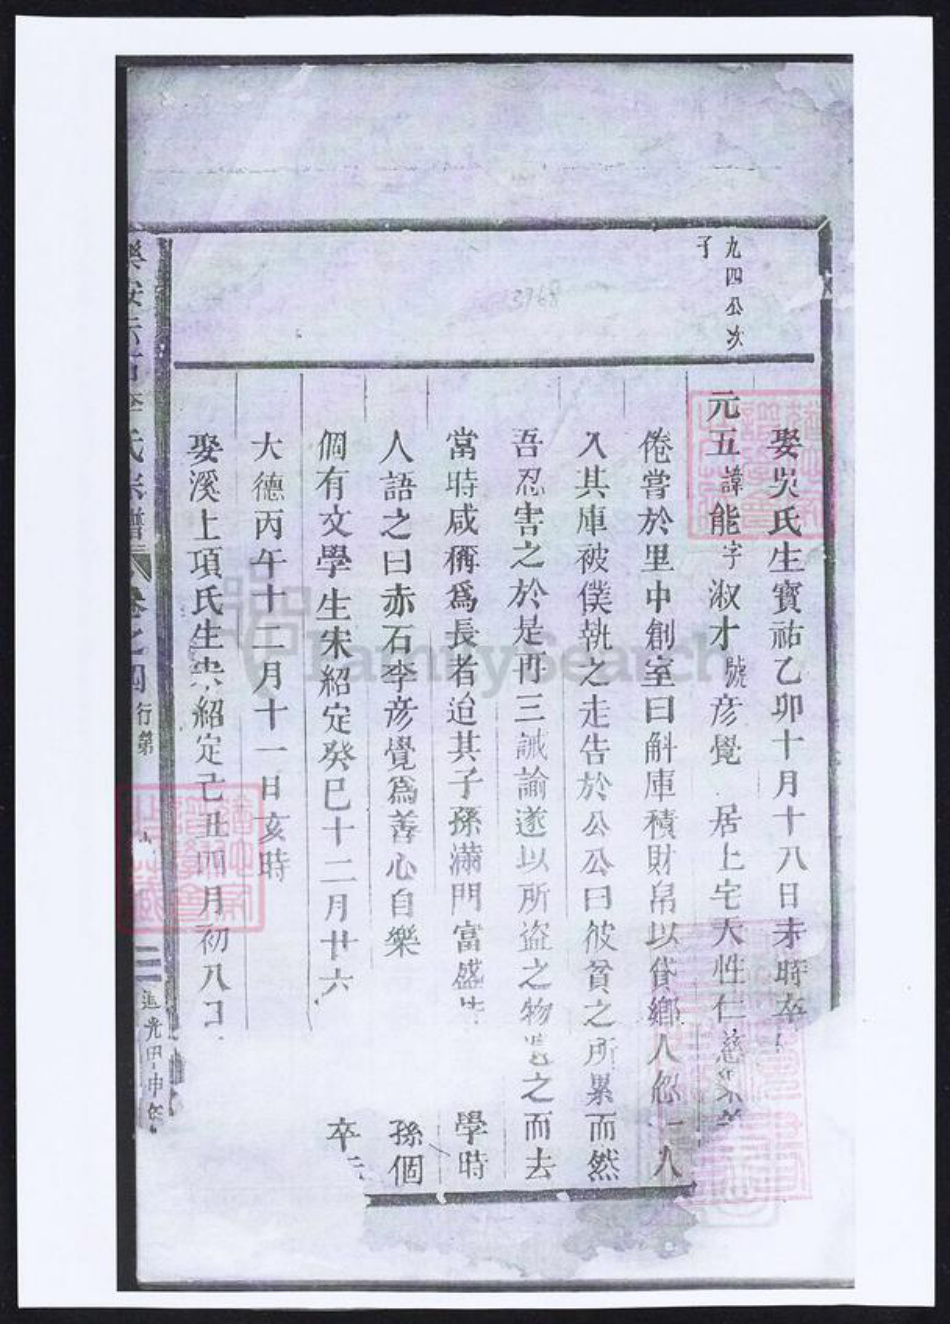 娶吳氏生寶祐乙卯十月十八日未時卒
九四公次
子
元五諱能字淑才號彦覺 居上宅天性仁慈
倦嘗於里中創室曰斛庫積財帛以貸鄉人忽一人
入其庫被僕執之走告於公公曰彼貧之所累而然
吾忍害之於是再三誡諭遂以所盜之物 之而去
當時咸稱爲長者迨其子孫滿門富盛 學時
人語之曰赤石李彦覺爲善心自樂 孫個
個有文學生宋紹定癸巳十二月廿六 卒
大德丙午十二月十一日亥時
娶溪上項氏生宋紹定己丑四月初八日
樂安赤石李氏宗譜 卷之四 行第 三 道光甲申
3768
FamilySearch